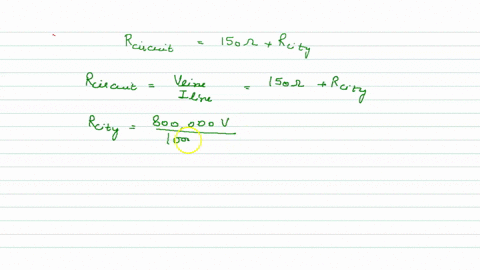 Rcircuit = 150Ω + Rcity
Rcircuit = Vline / Iline = 150Ω + Rcity
Rcity = 800,000 V / 100